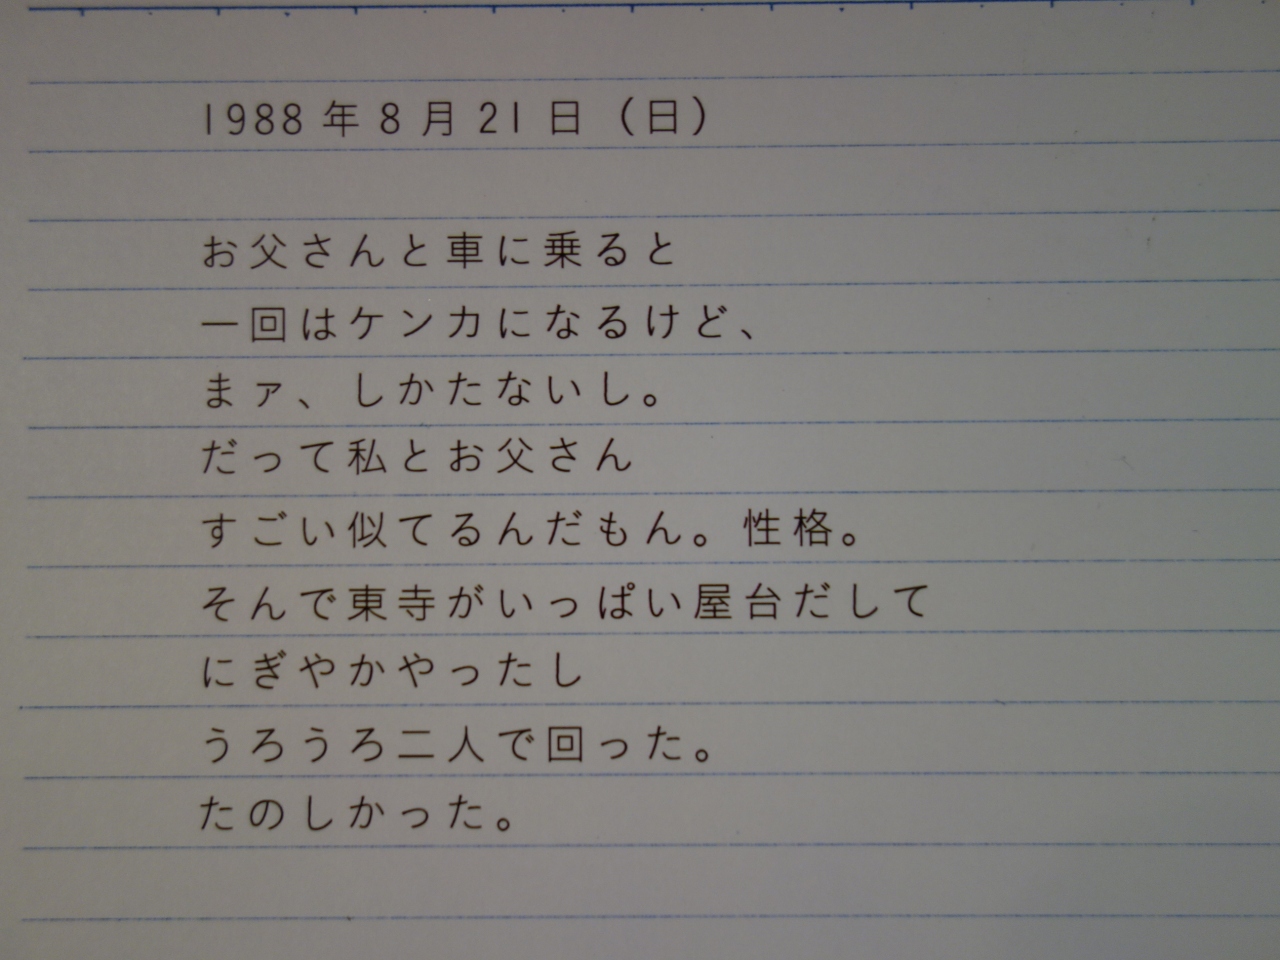 1988年8月21日（日）
お父さんと車に乗ると
一回はケンカになるけど、
まァ、しかたないし。
だって私とお父さん
すごい似てるんだもん。性格。
そんで東寺がいっぱい屋台だして
にぎやかやったし
うろうろ二人で回った。
たのしかった。